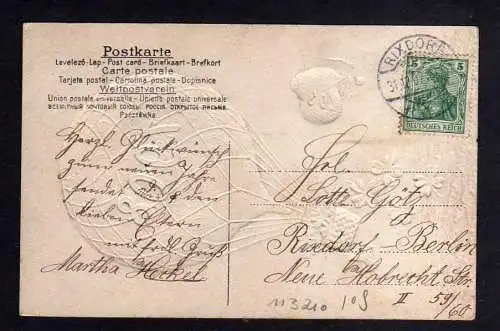 Postkarte
Levelező-Lap - Post card - Briefkaart - Brefkort
Carte postale
Tarjeta postal - Cartolina postale - Dopisnice
Weltpostverein
Union postale universelle - Unione postale universale
ВСЕМІРНЫЙ ПОЧТОВЫЙ СОЮЗЪ РОССІЯ. ОТКРЫТОЕ ПИСЬМО.
RIXDORF
31.12
5
DEUTSCHES REICH
Herzl. Glückwünsch
zum neuen Jahre
sendet
lieben Eltern
Gruß
Martha Heckel
Frl.
Lotte Götz
Rixdorf - Berlin
Neue Hobrecht Str.
II 59/60
113210 10S